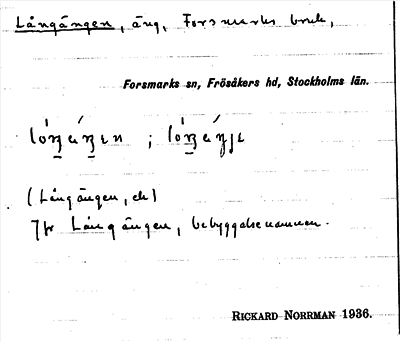 Långängen, äng, Forsmarks bruk,
Forsmarks sn, Frösåkers hd, Stockholms län.
(Långängen, ek)
Jfr Långängen, bebyggelsenamnen.
RICKARD NORRMAN 1936.